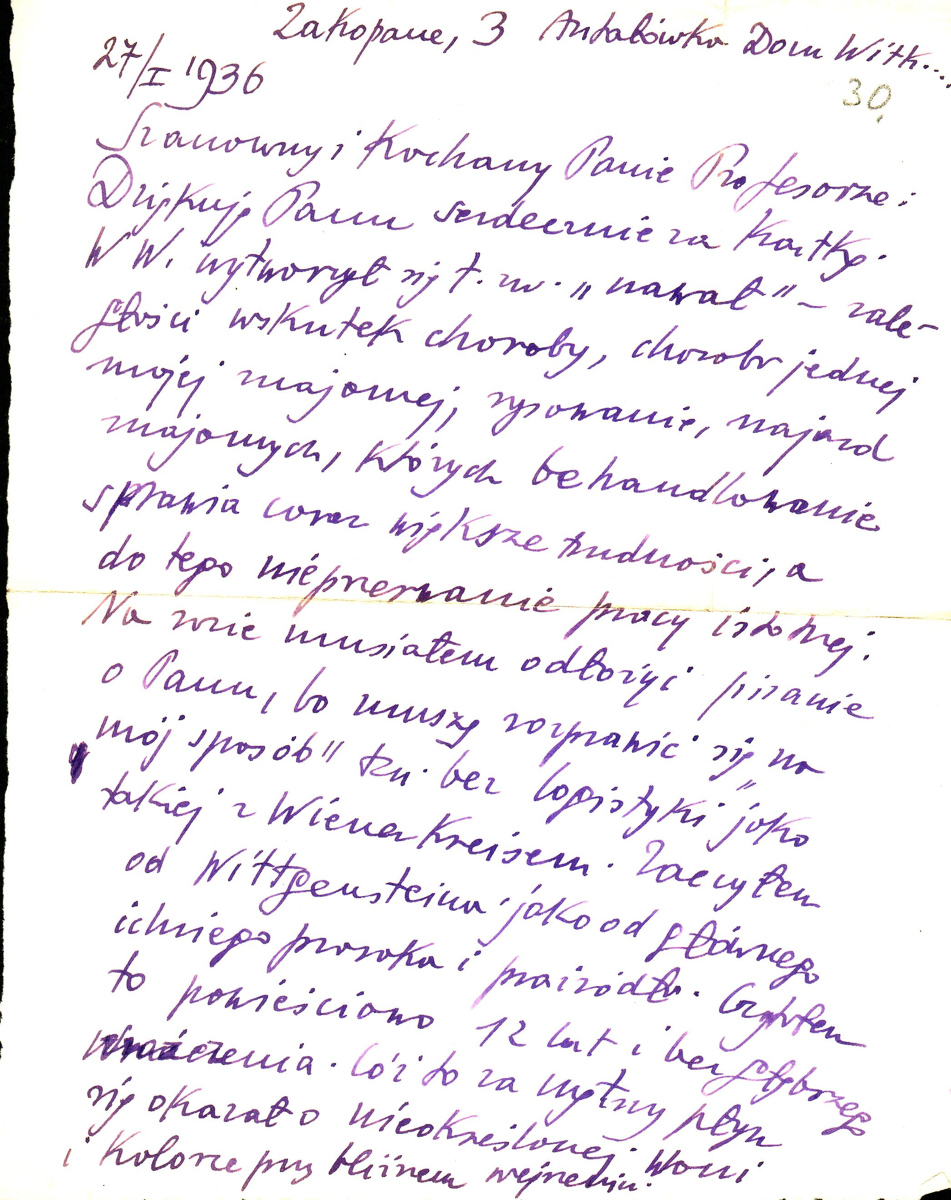 Zakopane, 3 Antałówka Dom Witk...
27/I 1936
30.
Szanowny i Kochany Panie Profesorze:
Dziękuję Panu serdecznie za kartkę.
W W. wytworzył się t. zw. „nawał" – zale-
głości wskutek choroby, choroby jednej
mojej znajomej, rysowanie, najazd
znajomych, których behandlowanie
sprawia coraz większe trudności, a
do tego nieprzerwanie pracy istotnej.
Na razie musiałem odłożyć pisanie
o Panu, bo muszę rozprawić się „na
mój sposób" tzn. bez logistyki jako
takiej z Wiener Kreisem. Zacząłem
od Wittgensteina jako od głównego
ichniego proroka i praźródła. Czytałem
to powieściowo 12 lat i bez głębszego
wrażenia. Cóż to za mętny płyn
się okazał o nieokreślonej woni
i kolorze przy bliższem wejrzeniu.